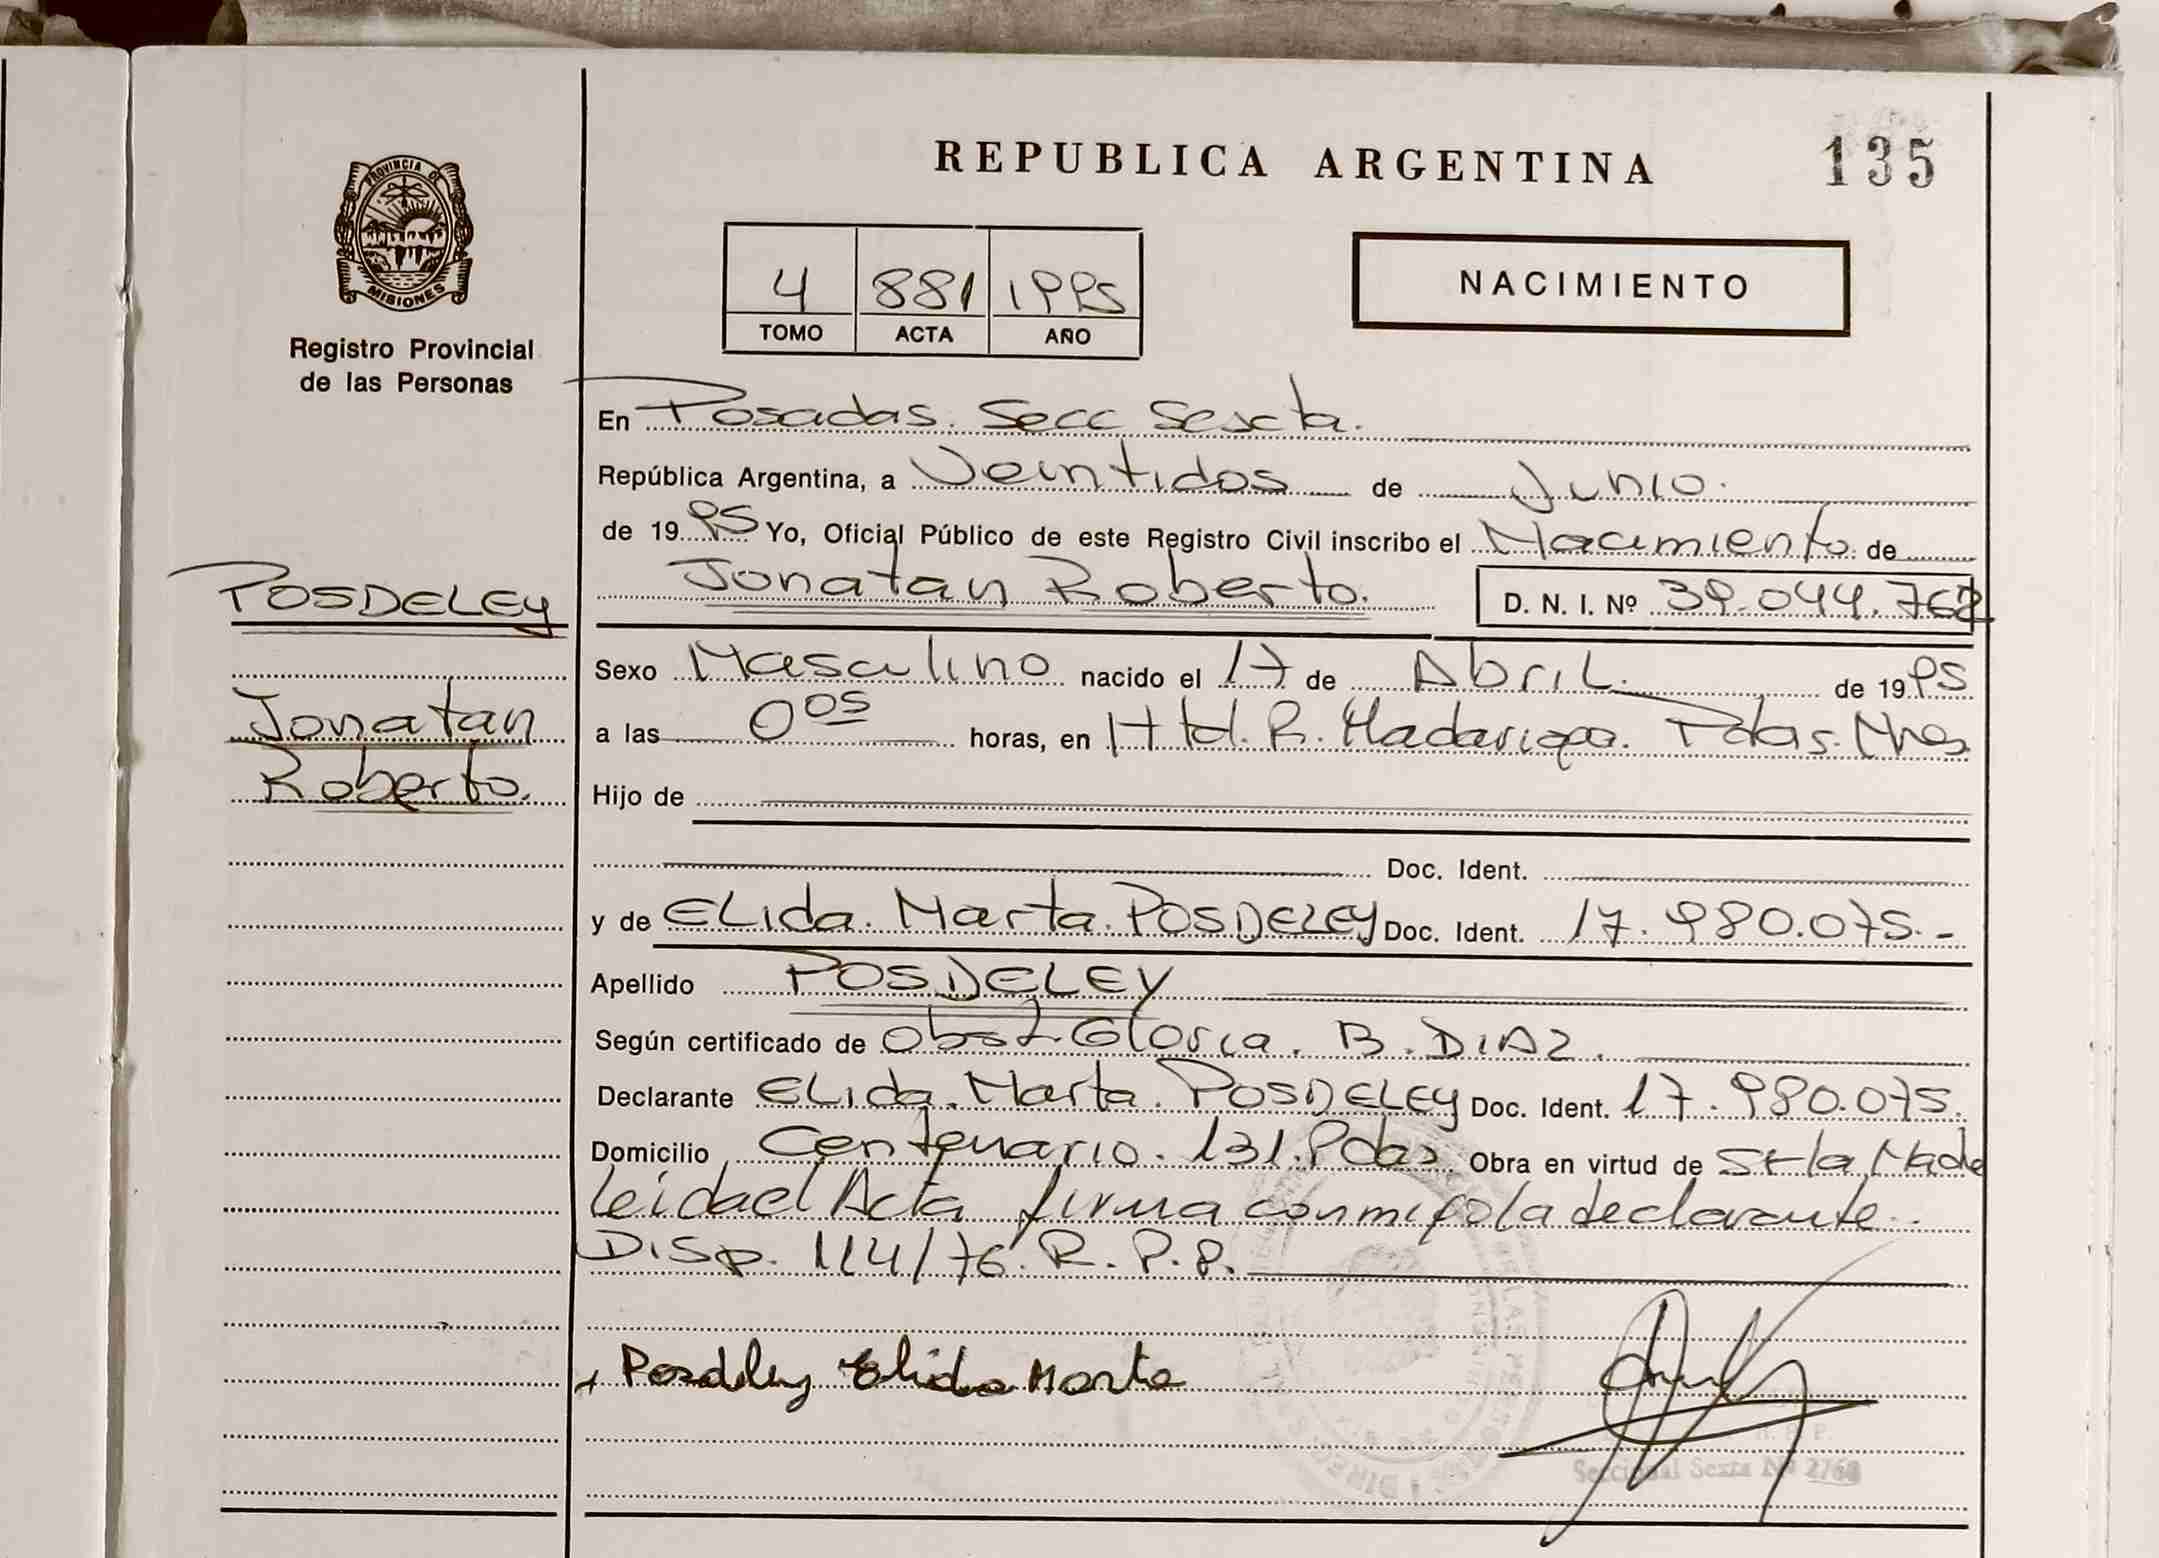 REPUBLICA ARGENTINA
135
PROVINCIA DE
MISIONES
Registro Provincial
de las Personas
4 881 1995
TOMO ACTA AÑO
NACIMIENTO
En Posadas. Secc Sexta.
República Argentina, a Veintidos de Junio.
de 19 95 Yo, Oficial Público de este Registro Civil inscribo el Nacimiento de
Jonatan Roberto. D. N. I. Nº 39.044.762
POSDELEY
Jonatan
Roberto.
Sexo Masculino nacido el 17 de Abril. de 19 95
a las 0 05 horas, en Htal. R. Madariaga. Pdas. Mnes.
Hijo de
Doc. Ident.
y de ELida. Marta. POSDELEY Doc. Ident. 17.980.075.-
Apellido POSDELEY
Según certificado de Obst. Gloria. B. DIAZ.
Declarante ELida. Marta. POSDELEY Doc. Ident. 17.980.075.
Domicilio Centenario. 131. Pdas Obra en virtud de ser la Made
leida el Acta firma conmigo la declarante.
Disp. 114/76. R. P. P.
Posdeley Elida Marta
Seccional Sexta Nº 2768